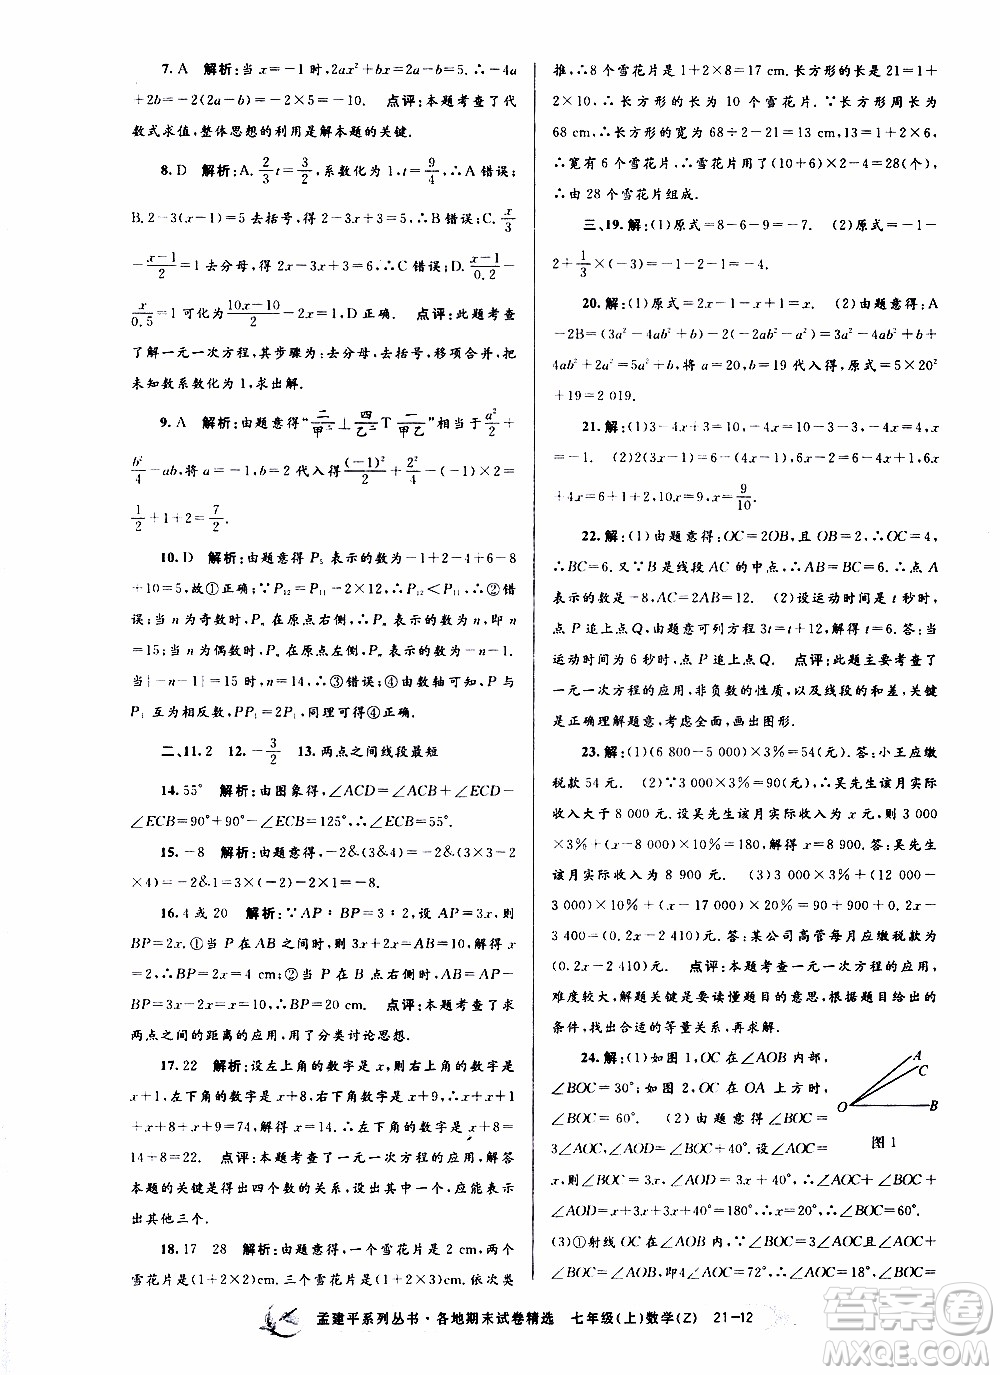 7. A　解析:当 x=-1 时,2ax²+bx=2a-b=5.∴-4a
+2b=-2(2a-b)=-2×5=-10.　点评:本题考查了代
数式求值,整体思想的利用是解本题的关键.
8. D　解析:A. 2/3 t=3/2,系数化为1,得 t=9/4,∴A 错误;
B. 2-3(x-1)=5 去括号,得 2-3x+3=5,∴B 错误;C. x/3
-(x-1)/2=1 去分母,得 2x-3x+3=6,∴C 错误;D. (x-1)/0.2-
x/0.5=1 可化为 (10x-10)/2-2x=1,D 正确.　点评:此题考查
了解一元一次方程,其步骤为:去分母,去括号,移项合并,把
未知数系数化为 1,求出解.
9. A　解析:由题意得“二/甲⊥四/乙T一/甲乙”相当于 a²/2+
b²/4-ab,将 a=-1,b=2 代入得 (-1)²/2+2²/4-(-1)×2=
1/2+1+2=7/2.
10. D　解析:由题意得 P₅ 表示的数为-1+2-4+6-8
+10=5,故①正确;∵P₁₂=P₁₁-2×12,∴P₁₂<P₁₁,∴②错
误;当 n 为奇数时,Pₙ 在原点右侧,∴Pₙ 表示的数为 n,∴n
=15;当 n 为偶数时,Pₙ 在原点左侧,∴Pₙ 表示的数为-n-1.
当|-n-1|=15 时,n=14,∴③错误;④由数轴可知,P 与
P₁ 互为相反数,PP₁=2P₁,同理可得④正确.
二、11. 2　12. -3/2　13. 两点之间线段最短
14. 55°　解析:由图象得,∠ACD=∠ACB+∠ECD-
∠ECB=90°+90°-∠ECB=125°,∴∠ECB=55°.
15. -8　解析:由题意得,-2&(3&-4)=-2&(-3×2
×4)=-2&1=-3×2-2×1=-8.
16. 4 或 20　解析:∵AP∶BP=3∶2,设 AP=3x,则
BP=2x.①当 P 在 AB 之间时,则 AB=AP+BP=5x=10,x
=2,∴BP=2x=4 cm;②当 P 在 B 点右侧时,则 AB=AP-
BP=3x-2x=x=10,∴BP=20 cm.　点评:本题考查了求
两点之间的距离的应用,用了分类讨论思想.
17. 22　解析:设左上角的数字是 x,则右上角的数字为
x+1,左下角的数字为 x+8,右下角数字是 x+9,∴x+x+1
+x+8+x+9=74,解得 x=14,∴左下角的数字是 x+8=
14+8=22.　点评:本题考查了一元一次方程的应用,解答
本题的关键是得出四个数的关系,设出其中一个,应能表示
出其他三个.
18. 17　28　解析:由题意得,一个雪花片是 2 cm,两个
雪花片是(1+2×2)cm.三个雪花片是(1+2×3)cm.依次类
推,∴8 个雪花片是 1+2×8=17 cm.长方形的长是 21=1+
2×10,∴长方形的长为 10 个雪花片.∵长方形周长为
68 cm,∴长方形的宽为 68÷2-21=13(cm).∵13=1+2×6.
∴宽有 6 个雪花片,∴雪花片用了(10+6)×2-4=28(个),
∴由 28 个雪花片组成.
三、19. 解:(1)原式=8-6-9=-7.　(2)原式=-1-
2+1/3×(-3)=-1-2-1=-4.
20. 解:(1)原式=2x-1-x+1=x.　(2)由题意得:A
-2B=(3a²-4ab²+b)-2(-2ab²-a²)=3a²-4ab²+b+
4ab²+2a²=5a²+b,将 a=20,b=19 代入得,原式=5×20²
+19=2 019.
21. 解:(1)3-4x+3=10,-4x=10-3-3,-4x=4,x
=-1.　(2)2(3x-1)=6-(4x-1),6x-2=6-4x+1,6x
+4x=6+1+2,10x=9,x=9/10.
22. 解:(1)由题意得:OC=2OB,且 OB=2,∴OC=4,
∴BC=6.又∵B 是线段 AC 的中点,∴AB=BC=6,∴点 A
表示的数是-8,AC=2AB=12.　(2)设运动时间是 t 秒时,
点 P 追上点 Q,由题意可列方程 3t=t+12,解得 t=6.答:当
运动时间为 6 秒时,点 P 追上点 Q.　点评:此题主要考查了
一元一次方程的应用,非负数的性质,以及线段的和差,关键
是正确理解题意,考虑全面,画出图形.
23. 解:(1)(6 800-5 000)×3%=54(元).答:小王应缴
税款 54 元.　(2)∵3 000×3%=90(元),∴吴先生该月实际
收入大于 8 000 元,∴设吴先生该月实际收入为 x 元,则
3 000×3%+(x-8 000)×10%=540,解得 x=12 500.答:吴先生
该月实际收入为
3 000×3%+(17 000-8 000)×10%+(x-17 000)×20%=90+9 00+0.2x-
3 400=(0.2x-2 410)元.答:某公司高管每月应缴税款
(0.2x-2 410)元.　点评:本题考查一元一次方程的应用,
难度较大,解题关键是要读懂题目的意思,根据题目给出的
条件,找出合适的等量关系,再求解.
24. 解:(1)如图 1,OC 在∠AOB 内部,
∠BOC=30°;如图 2,OC 在 OA 上方时,
∠BOC=60°.　(2)由题意得∠BOC=
3∠AOC,∠AOD=∠BOC+40°.设∠AOC=
x,则∠BOC=3x,∠AOD=3x+40°,∵∠AOC+
∠AOD=x+3x+40°=180°,∴x=35°
(3)①射线 OC 在∠AOD 内,
图 1
A
C
O
B
孟建平系列丛书·各地期末试卷精选　七年级(上)数学(Z)　21-12
MXQE.COM